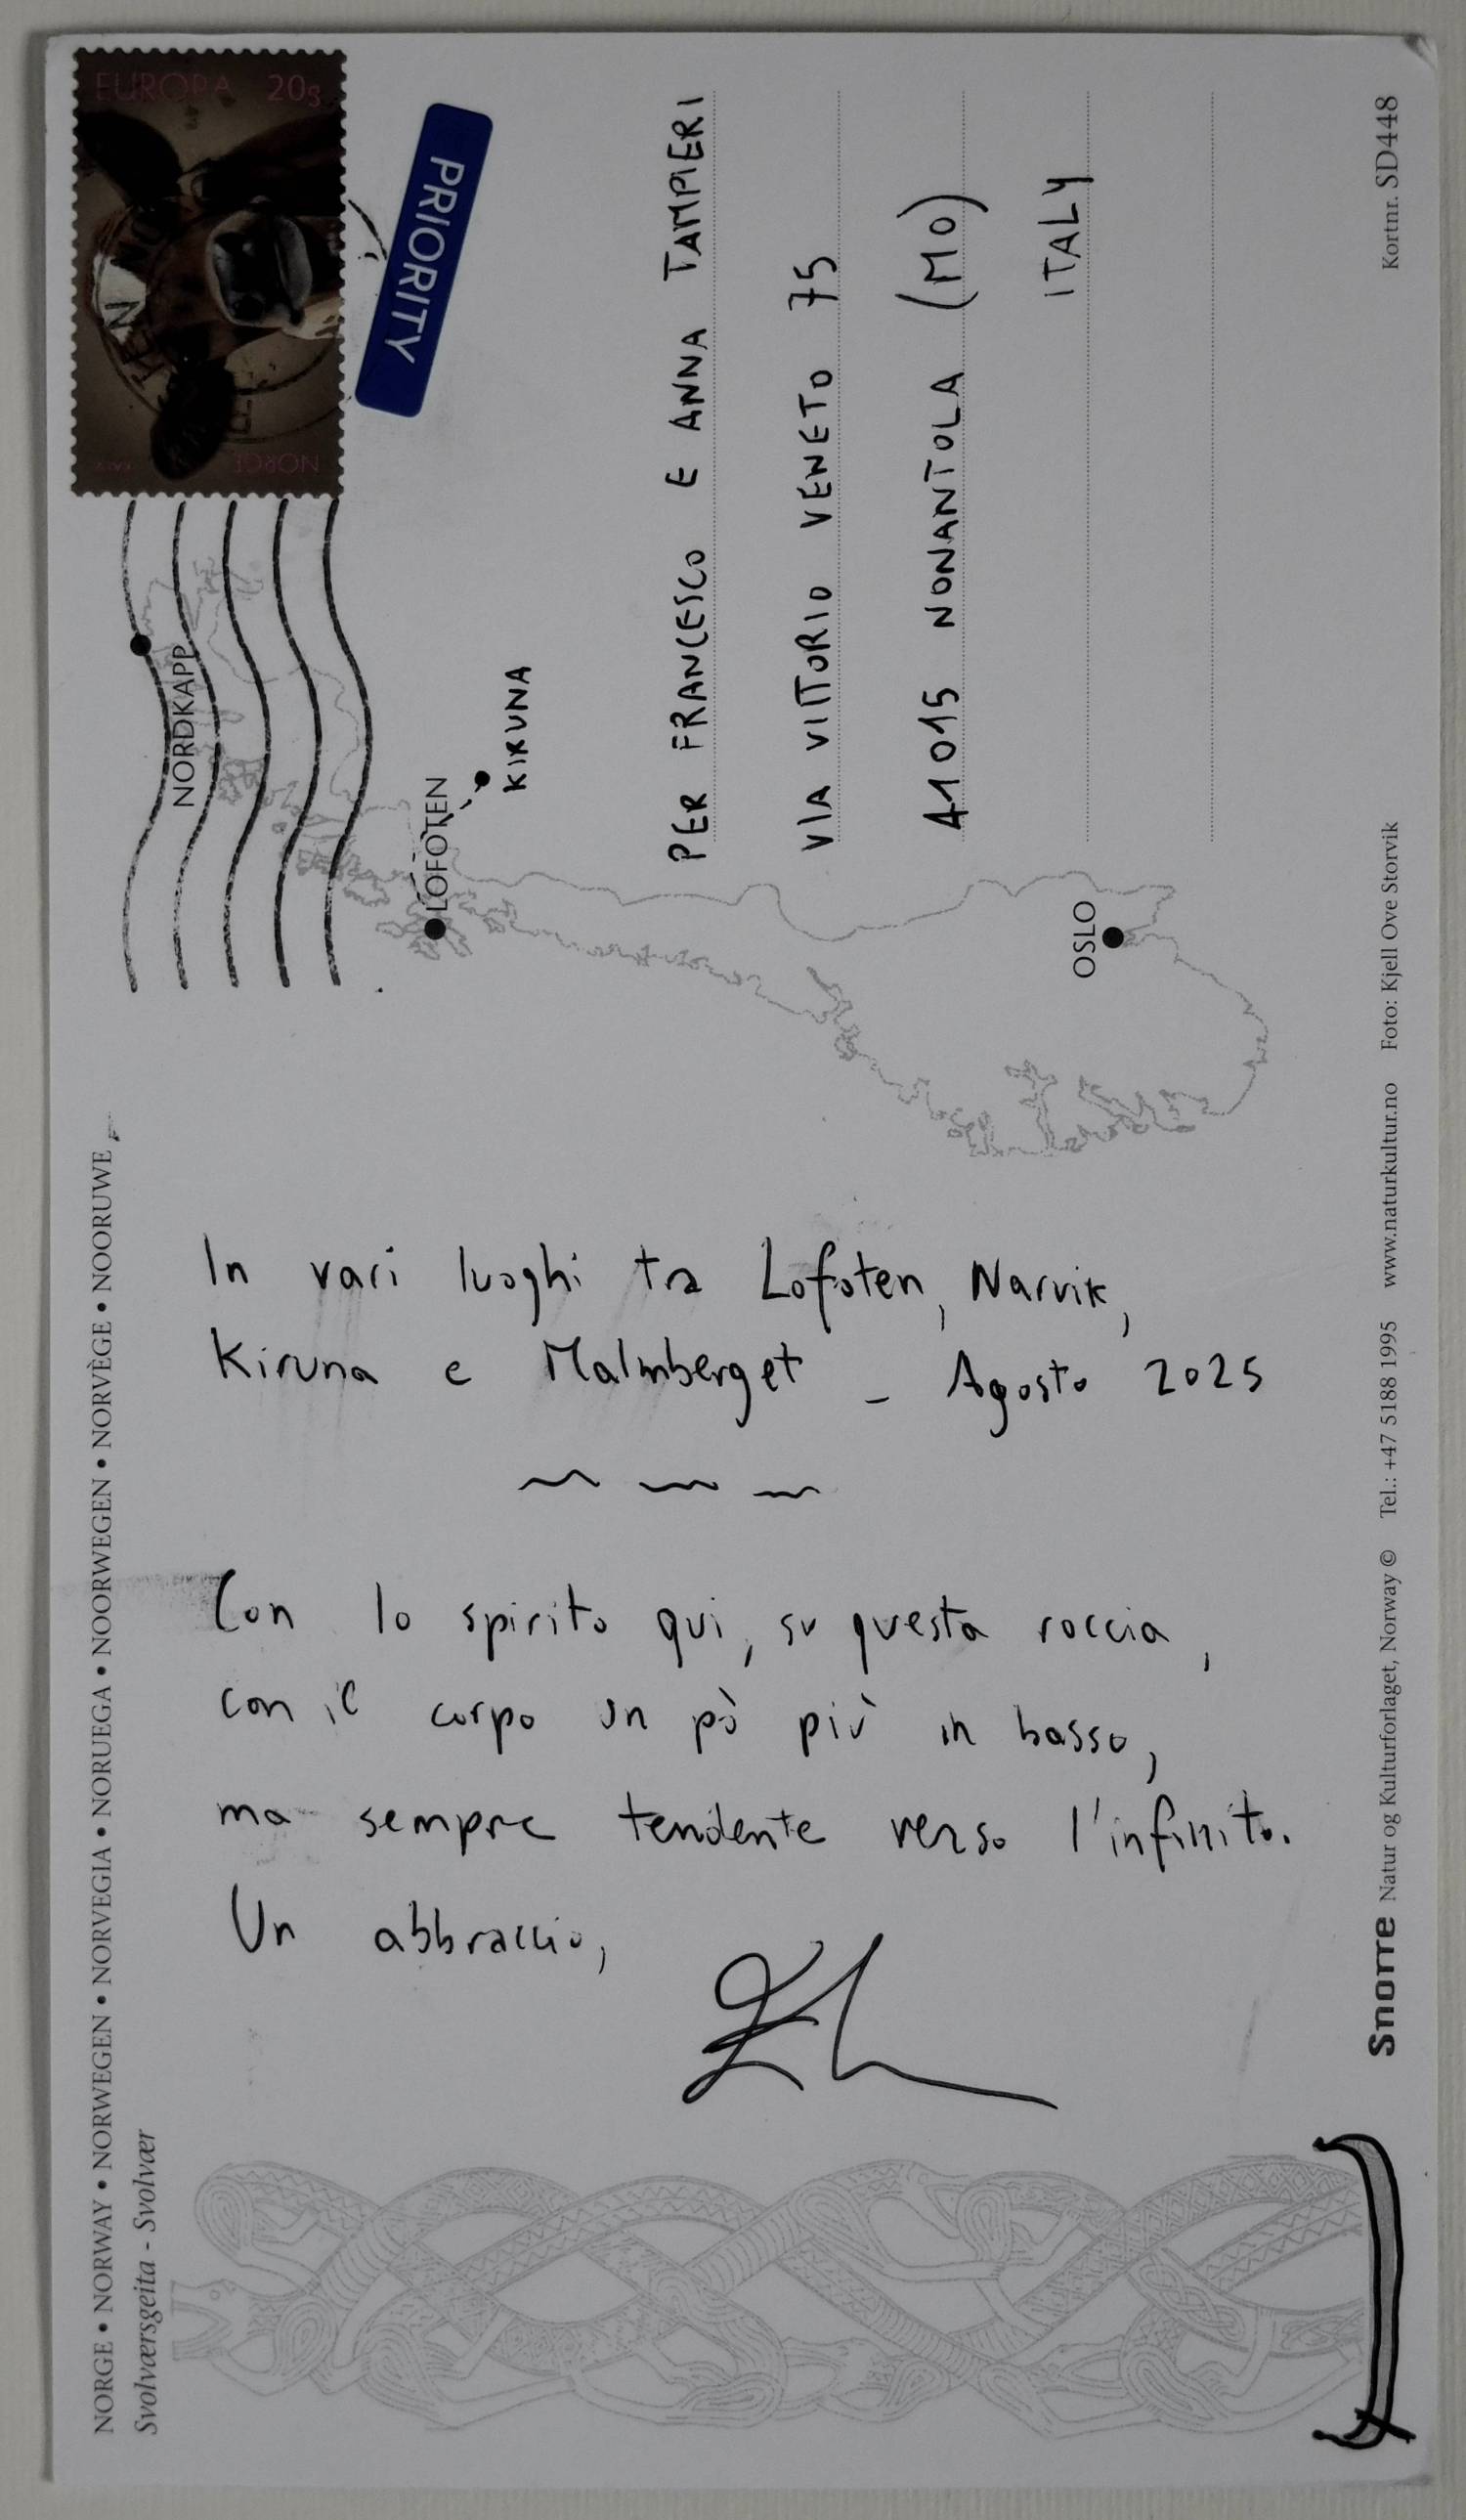 NORGE • NORWAY • NORWEGEN • NORVEGIA • NORUEGA • NOORWEGEN • NORVÈGE • NOORUWE
Svolværsgeita - Svolvær
In vari luoghi tra Lofoten, Narvik,
Kiruna e Malmberget - Agosto 2025
Con lo spirito qui, su questa roccia,
con il corpo un pò più in basso,
ma sempre tendente verso l'infinito.
Un abbraccio,
EUROPA 20g
NORGE
PRIORITY
NORDKAPP
LOFOTEN
KIRUNA
OSLO
PER FRANCESCO E ANNA TAMPIERI
VIA VITTORIO VENETO 75
41015 NONANTOLA (MO)
ITALY
Snorre Natur og Kulturforlaget, Norway © Tel.: +47 5188 1995 www.naturkultur.no Foto: Kjell Ove Storvik Kortnr. SD448